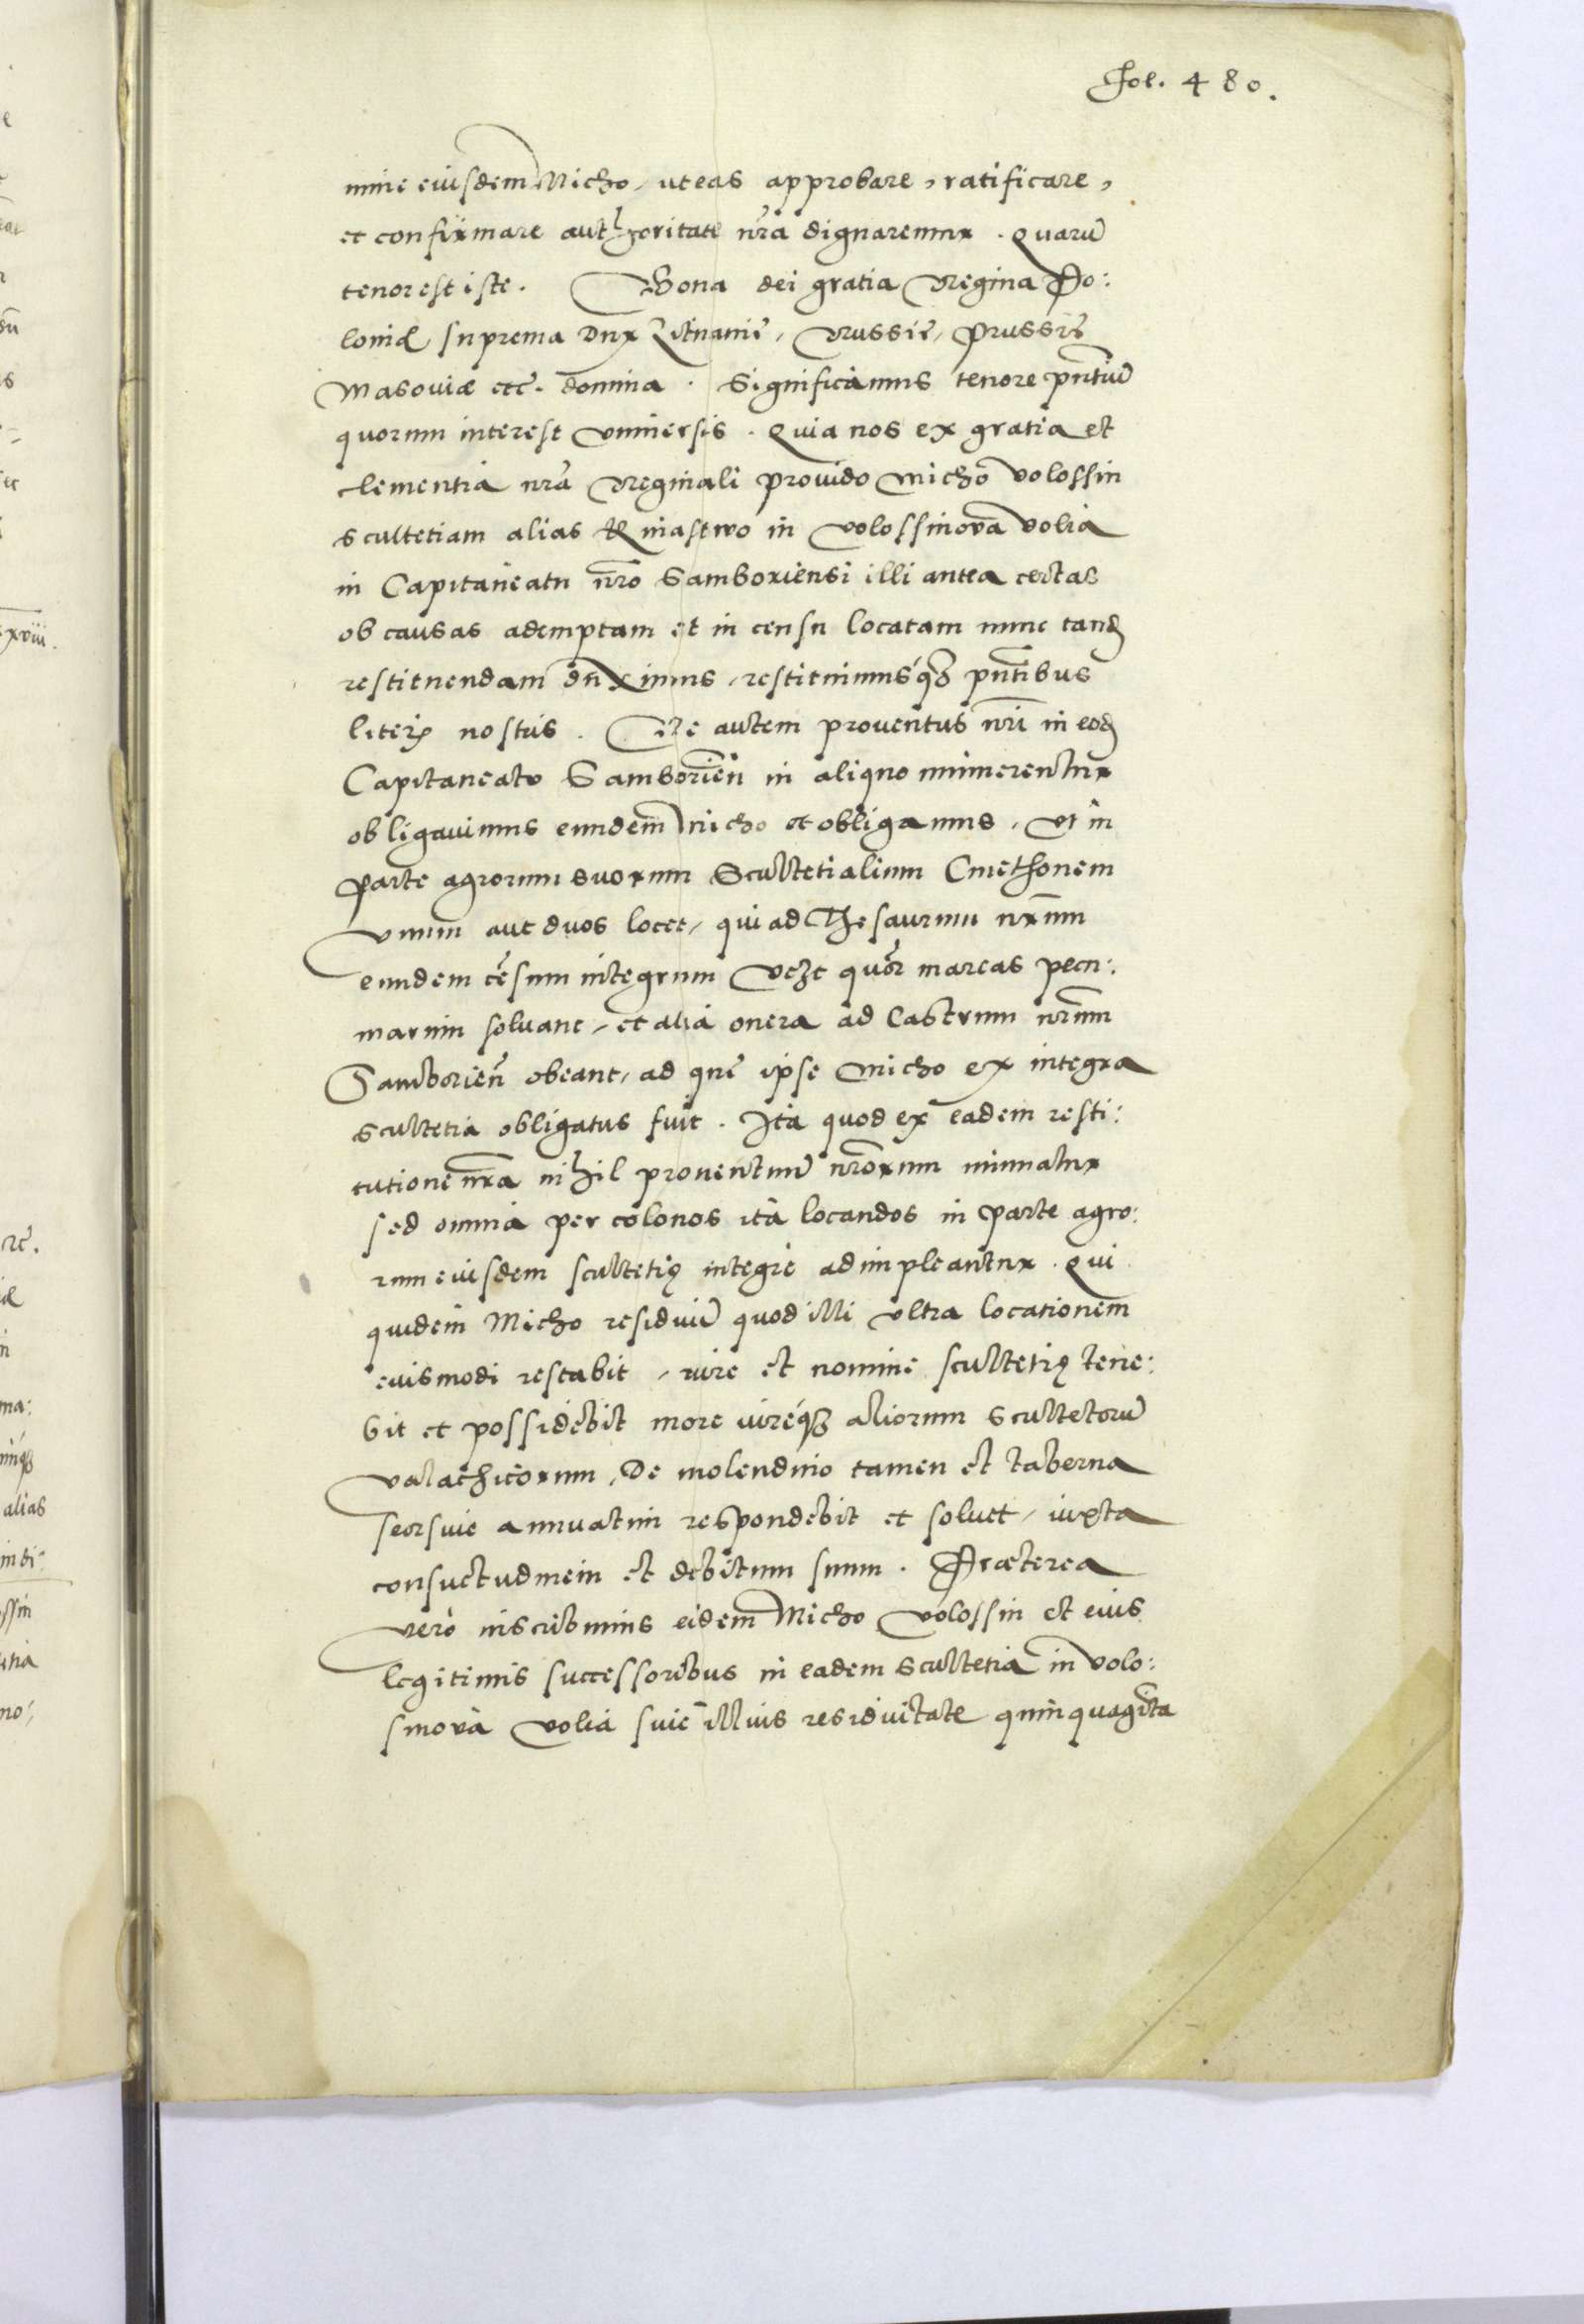 Fol. 480.
mine eiusdem Micho, ut eas approbare, ratificare,
et confirmare authoritate nrã dignaremur. Quarũ
tenor est iste. Bona dei gratia Regina Po:
loniæ suprema Dux Lituaniẽ, Russiẽ, Prussiẽ
Masoviæ etc̃. domina. Significamus tenore pñtiũ
quorum interest universis. Quia nos ex gratia et
clementia nrã Reginali provido Micho Volossin
scultetiam alias Kniastwo in Volossinova Volia
in Capitaneatu nrõ Samboriensi illi antea certas
ob causas ademptam et in censu locatam nunc tanđ
restituendam duximus, restituimusq3 pñtibus
literis nostris. Ne autem proventus nrĩ in eođ
Capitaneatu Samborieñ in aliquo minuerentur
obligavimus eundem Micho et obligamus, ut in
parte agrorum suorum Scultetialium Cmethonem
unum aut duos locet, qui ad Thesaurum nr̃um
eundem cẽsum integrum vc̃zt quõr marcas pecu:
niarum solvant, et alia onera ad Castrum nrũm
Samborieñ obeant, ad quẽ ipse Micho ex integra
scultetia obligatus fuit. Ita quod ex eadem resti:
tutione nrã nihil proventuũ nrõrum minuatur
sed omnia per colonos ita locandos in parte agro:
rum eiusdem scultetię integrè adimpleantur. Qui
quidem Micho residuũ quod illi ultra locationem
eiusmodi restabit, iure et nomine scultetię tene:
bit et possidebit more iureq3 aliorum scultetorũ
valachicorum, De molendino tamen et taberna
seorsiuẽ annuatim respondebit et solvet, iuxta
consuetudinem et debitum suum. Præterea
vero inscribimus eidem Micho Volossin et eius
legitimis successoribus in eadem scultetia in Volo:
sinova Volia suiẽ illius residuitate quinquaginta